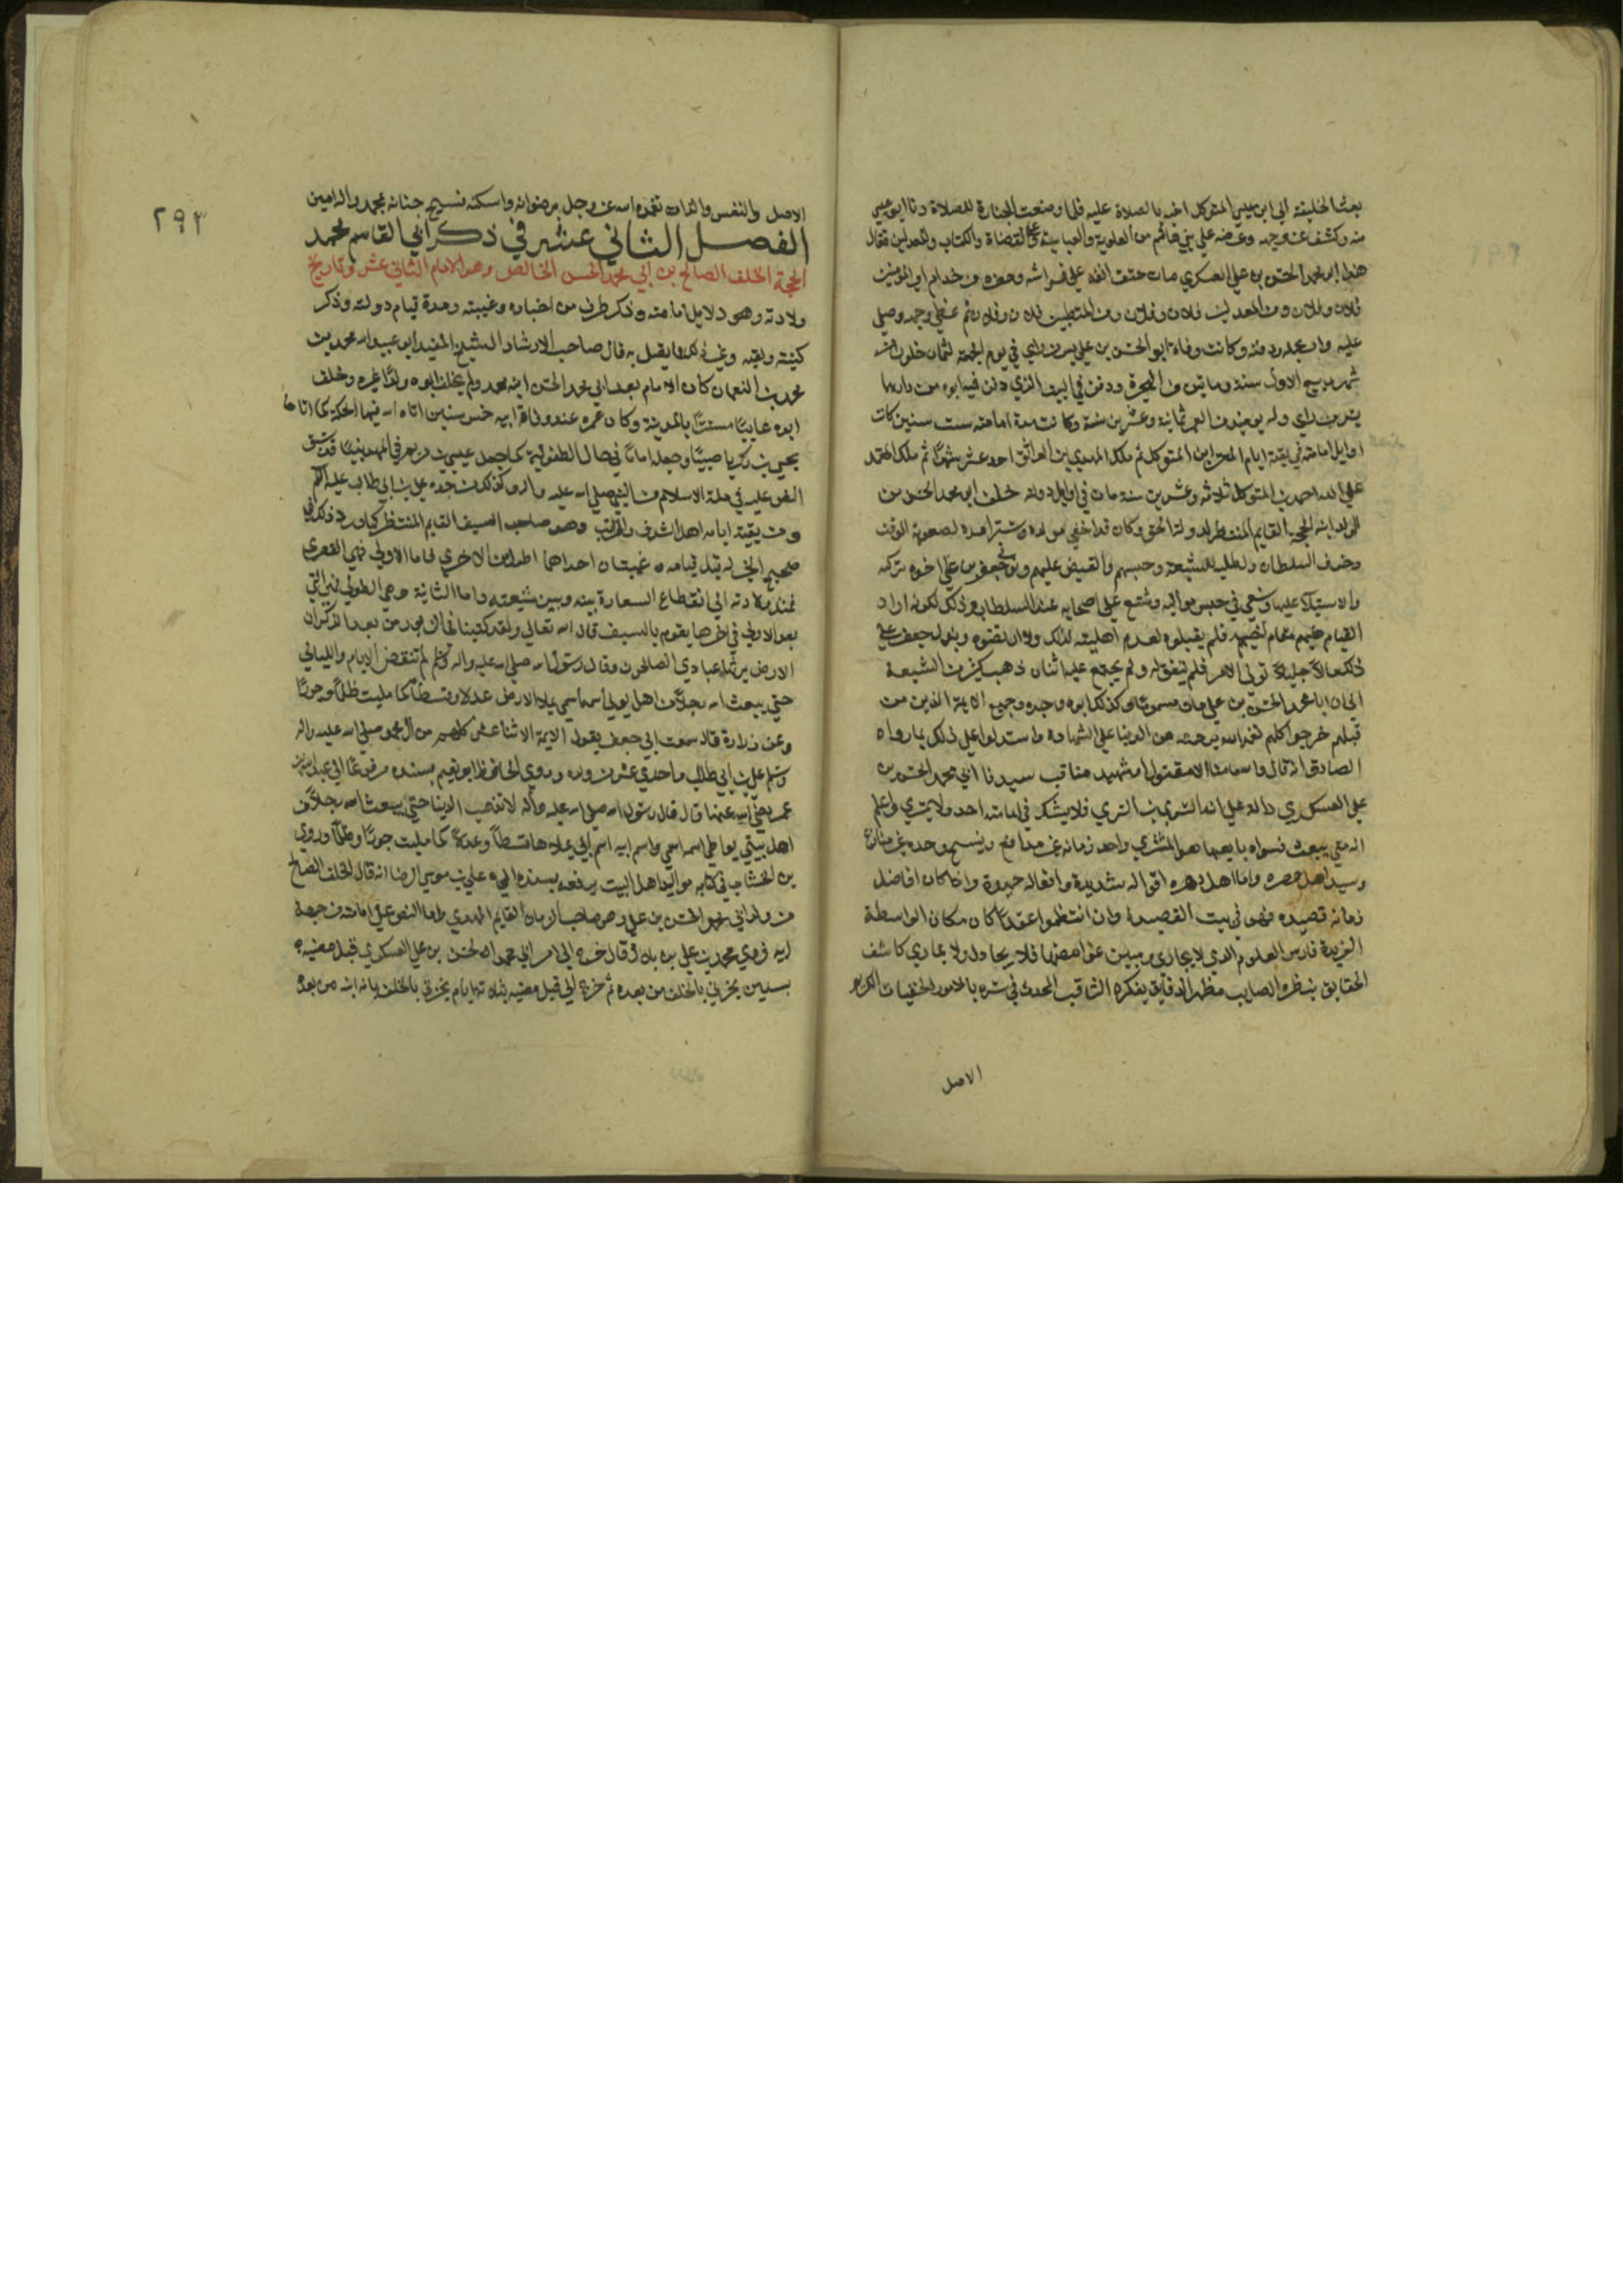 بعث الخليفة الى ابن عيسى المتوكل اخيه بالصلاة عليه فلما وضعت الجنازة للصلاة دنا ابو عيسى
منه وكشف عن وجهه وعرضه على بني هاشم من العلوية والعباسية والقضاة والكتاب والمعدلين فقال
هذا ابو محمد الحسن بن علي العسكري مات حتف انفه على فراشه وحضره من خدام امير المؤمنين
فلان وفلان ومن المعدلين فلان وفلان ومن المتطببين فلان وفلان ثم غطى وجهه وصلى
عليه وامر بحمله ودفنه وكانت وفاة ابو الحسن بن علي بسر من راي في يوم الجمعة لثمان خلون من
شهر ربيع الاول سنة وماتين من الهجرة ودفن في البيت الذي دفن فيه ابوه من دارهما
بسر من راي وله يوميذ من العمر ثمانية وعشرين سنة وكانت مدة امامته ست سنين كانت
اوايل امامته في بقية ايام المعز ابن المتوكل ثم ملك المهدي بن الواثق احد عشر شهرا ثم ملك المعتمد
على الله احمد بن المتوكل ثلاثه وعشرين سنة مات في اوايل دولته خلف ابو محمد الحسن من
الولد ابنه الحجة القايم المنتظر لدولة الحق وكان قد اخفى مولده وستر امره لصعوبة الوقت
وخوف السلطان وطلبه للشيعة وحبسهم والقبض عليهم وتولى جعفر بن علي اخوه تركته
والاستيلا عليها وسعى في حبس مواليه وشنع على اصحابه عند السلطان وذلك لكونه اراد
القيام عليهم مقام اخيه فلم يقبلوه لعدم اهليته لذلك ولا ارتضوه وبذل جعفر على
ذلك مالا جليلا لتولى الامر فلم يتفق له ولم يجتمع عليه اثنان ذهب كثير من الشيعة
الى ان ابا محمد الحسن بن علي مات مسموما وكذلك ابوه وجده وجميع الايمة الذين من
قبلهم خرجوا كلهم تغمدالله برحمته من الدنيا على الشهادة واستدلوا على ذلك بما رواه
الصادق انه قال والله ما منا الا مقتول او شهيد مناقب سيدنا ابي محمد الحسن بن
علي العسكري دالة على انه السري بن السري فلا يشك في امامته احد ولا يمتري واعلم
وسيد اهل عصره وامام اهل دهره اقواله سديدة وافعاله حميدة واذا كان افاضل
زمانه قصيده فهو في بيت القصيدة وان انتظموا عقدا كان مكان الواسطة
الفريدة فارس العلوم الذي لا يجارى ومبين غوامضها فلا يحاول ولا يمارى كاشف
الحقايق بنظره الصايب مظهر الدقايق بفكره الثاقب المحدث في سره بالامور الخفيات الكريم
الاصل
٢٩٣
الاصل والنفس والذات تغمده الله عز وجل برضوانه واسكنه فسيح جنانه بمحمد واله امين
الفصل الثاني عشر في ذكر ابي القاسم محمد
الحجة الخلف الصالح بن ابي محمد الحسن الخالص وهو الامام الثاني عشر وتاريخ
ولادته وهو دلايل امامته وذكر طرف من اخباره وغيبته ومدة قيام دولته وذكر
كنيته ولقبه وغير ذلك مما يتصل به قال صاحب الارشاد الشيخ المفيد ابو عبد الله محمد بن
محمد بن النعمان كان الامام بعد ابي محمد الحسن ابنه محمد ولم يخلف ابوه ولدا غيره وخلف
ابوه غايبا مستترا بالمدينة وكان عمره عند وفاة ابيه خمس سنين اتاه الله فيها الحكمة كما اتاها
يحيى بن زكريا صبيا وجعله اماما في حال الطفولية كما جعل عيسى بن مريم في المهد نبيا قد سبق
النص عليه في ملة الاسلام من النبي صلى الله عليه واله وكذلك من جده علي بن ابي طالب عليه السلام
ومن بقية ابايه اهل الشرف والمراتب وهو صاحب السيف القايم المنتظر كما ورد ذلك في
صحيح الخبر له قبل قيامه غيبتان احداهما اطول من الاخرى فاما الاولى فهي القصرى
فمنذ ولادته الى انقطاع السعارة بينه وبين شيعته واما الثانية وهي الطولى فهي التي
بعد الاولى في اخرها يقوم بالسيف قال الله تعالى ولقد كتبنا في الزبور من بعد الذكر ان
الارض يرثها عبادي الصالحون وقال رسول الله صلى الله عليه واله وسلم لم تنقض الايام والليالي
حتى يبعث الله رجلا من اهل بيتي اسمه اسمي يملا الارض عدلا وقسطا كما مليت ظلما وجورا
وعن زرارة قال سمعت ابي جعفر يقول الايمة الاثنا عشر كلهم من ال محمد صلى الله عليه واله
وسلم علي بن ابي طالب واحدي عشر من ولده وروي الحافظ ابو نعيم بسنده مرفوعا الى عبد الله بن
عمر رضي الله عنهما قال قال رسول الله صلى الله عليه واله لا تذهب الدنيا حتى يبعث الله رجلا من
اهل بيتي يواطي اسمه اسمي واسم ابيه اسم ابي يملاها قسطا وعدلا كما مليت جورا وظلما وروي
بن الخشاب في كتابه مواليد اهل البيت يرفعه بسنده الى علي بن موسى الرضا انه قال الخلف الصالح
من ولد ابي محمد الحسن بن علي وهو صاحب الزمان القايم المهدي واما النص على امامته من جهة
ابيه فروي محمد بن علي بن بلال قال خرج الي امر ابي محمد الحسن بن علي العسكري قبل مضيه
بسنتين يخبرني بالخلف من بعده ثم خرج الي قبل مضيه بثلاثة ايام يخبرني بالخلف بانه ابنه من بعده